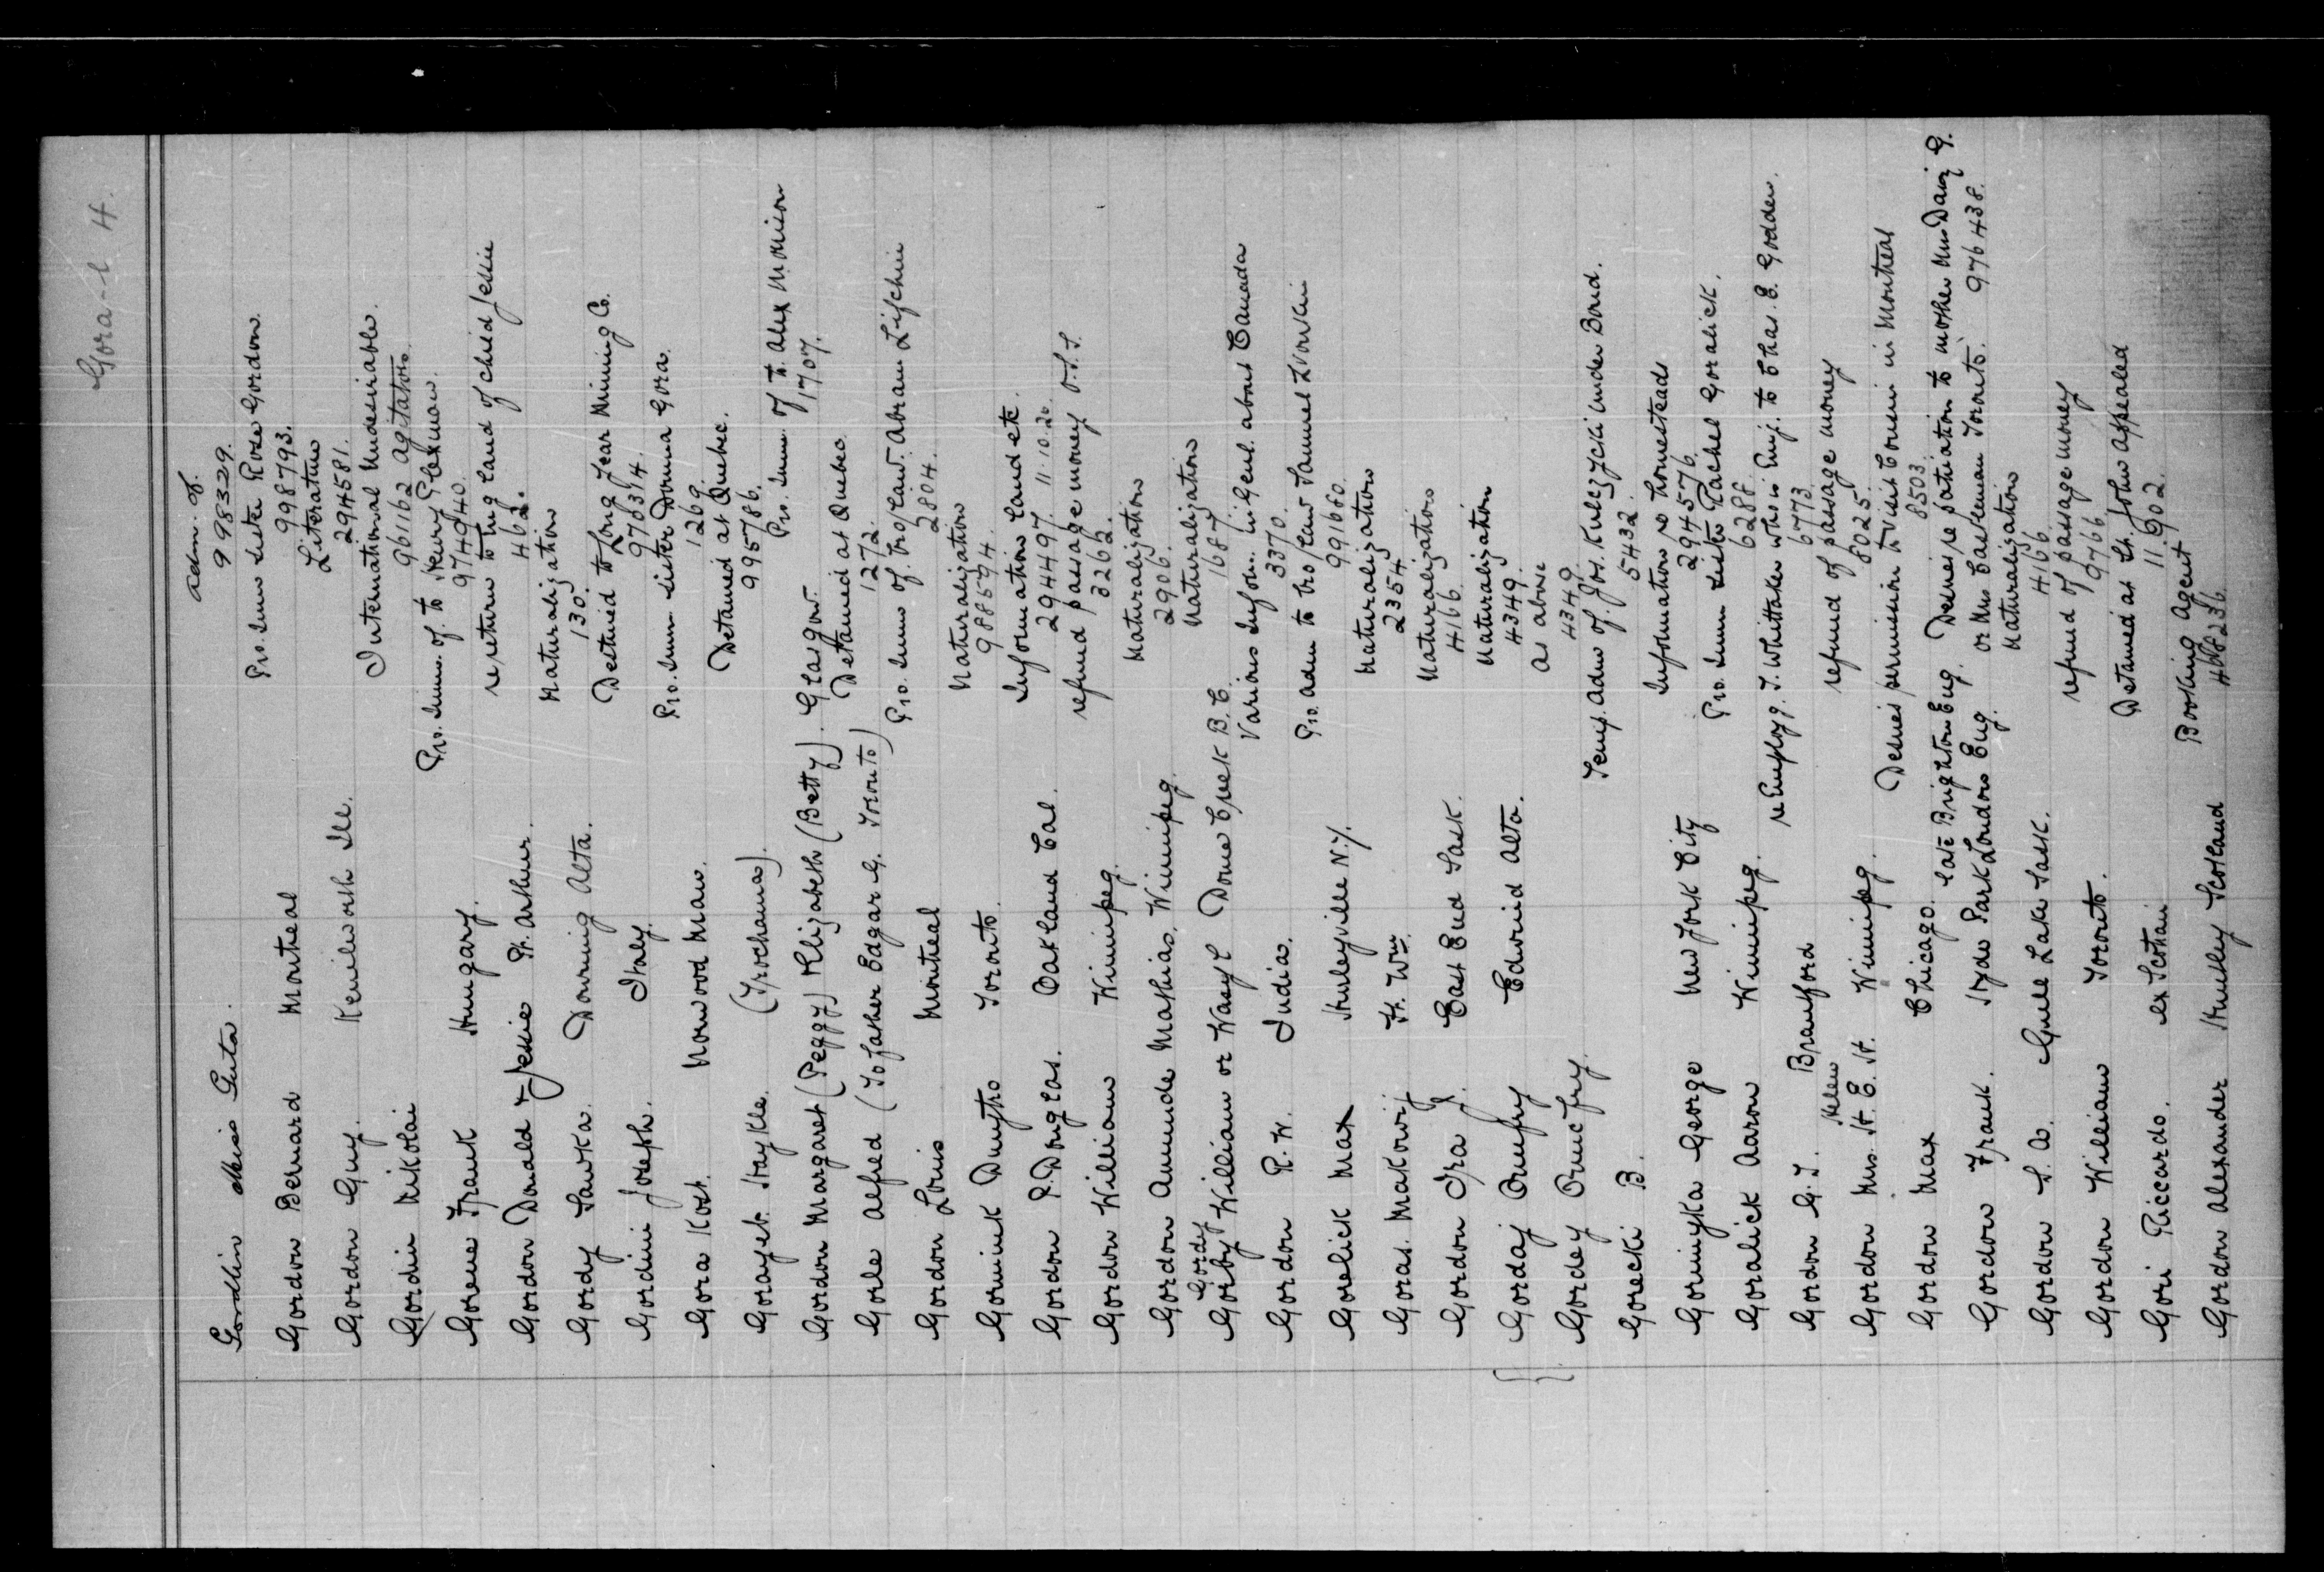 Gora-l 4.
Gordhin Miss Guta. Adm. of.
998329.
Gordon Bernard Montreal Pro. Imm sister Rose Gordon.
998793.
Gordon Guy. Kenilworth Ill. Literature
294581.
Gordin Nikolai International Undesirable.
961162 Agitator.
Gorene Frank Hungary. Pro. Imm. of. to Henry
974940.
Gordon Donald & Jessie Pt. Arthur. re return to England of child Jessie
462.
Gordy Sawka. Downing Alta. Naturalization
130.
Gordini Joseph. Italy. Destined to Long Lear Mining Co.
978314.
Gora Kost. Norwood Man. Pro. Imm sister Domna Gora.
1269.
Gorayeb. Haykle. (Trochama). Detained at Quebec.
995786.
Gordon Margaret (Peggy) & Elizabeth (Betty). Glasgow. Pro. Imm. of to. Alex Morrison
1707.
Gorle Alfred (To father Edgar G. Toronto) Detained at Quebec
1272.
Gordon Louis Montreal Pro. Imm of. bro/law. Abram Lifchin
2804.
Gorniuk Dmytro Toronto. Naturalization
988594.
Gordon P. Douglas. Oakland Cal. Information land etc.
294497. 11.10.20.
Gordon William Winnipeg. refund passage money O.S.S.
3262.
Gordon Amunde Mathias. Winnipeg. Naturalization
2906.
Gordy
Gorby William or Wasyl Dome Creek B.C. Naturalization
1687.
Gordon R. W. India. Various Inform. in Genl. about Canada
3370.
Gorelick Max Hurleyville N.Y. Pro. Adm to bro/law Samuel Dvorkin
991660.
Goras. Makowij Ft. Wm. Naturalization
2354.
Gordon Ira J. East End Sask. Naturalization
4166.
Gordaj Onufry Edwind Alta. Naturalization
4349.
Gordey Onuefry. as above
4349.
Gorecki B. Temp. Adm of. Jos. Kulezycki under Bond.
5432.
Gorniyka George New York City Information re homesteads
294576.
Goralick Aaron Winnipeg. Pro. Imm sister Rachel Goralick.
6288.
Gordon G. J. Brantford re Employ J. Whittaker who is Emj. to Chas. E. Godden.
6773.
Helen
Gordon Mrs. H. E. H. Winnipeg. refund of passage money
8025.
Gordon Max Chicago. Desires permission to visit Cousin in Montreal
8503.
Gordon Frank. late Brighton Eng. Desires re patriation to mother Mrs Daisy G.
Hyde Park London Eng. or Mrs Eastleman Toronto. 976438.
Gordon S. A. Gull Lake Sask. Naturalization
4166.
Gordon William Toronto. refund of passage money
9766.
Gori Riccardo. ex Scotian Detained at St. John appealed
11.902.
Gordon Alexander Huntley Scotland Booking Agent
468236.